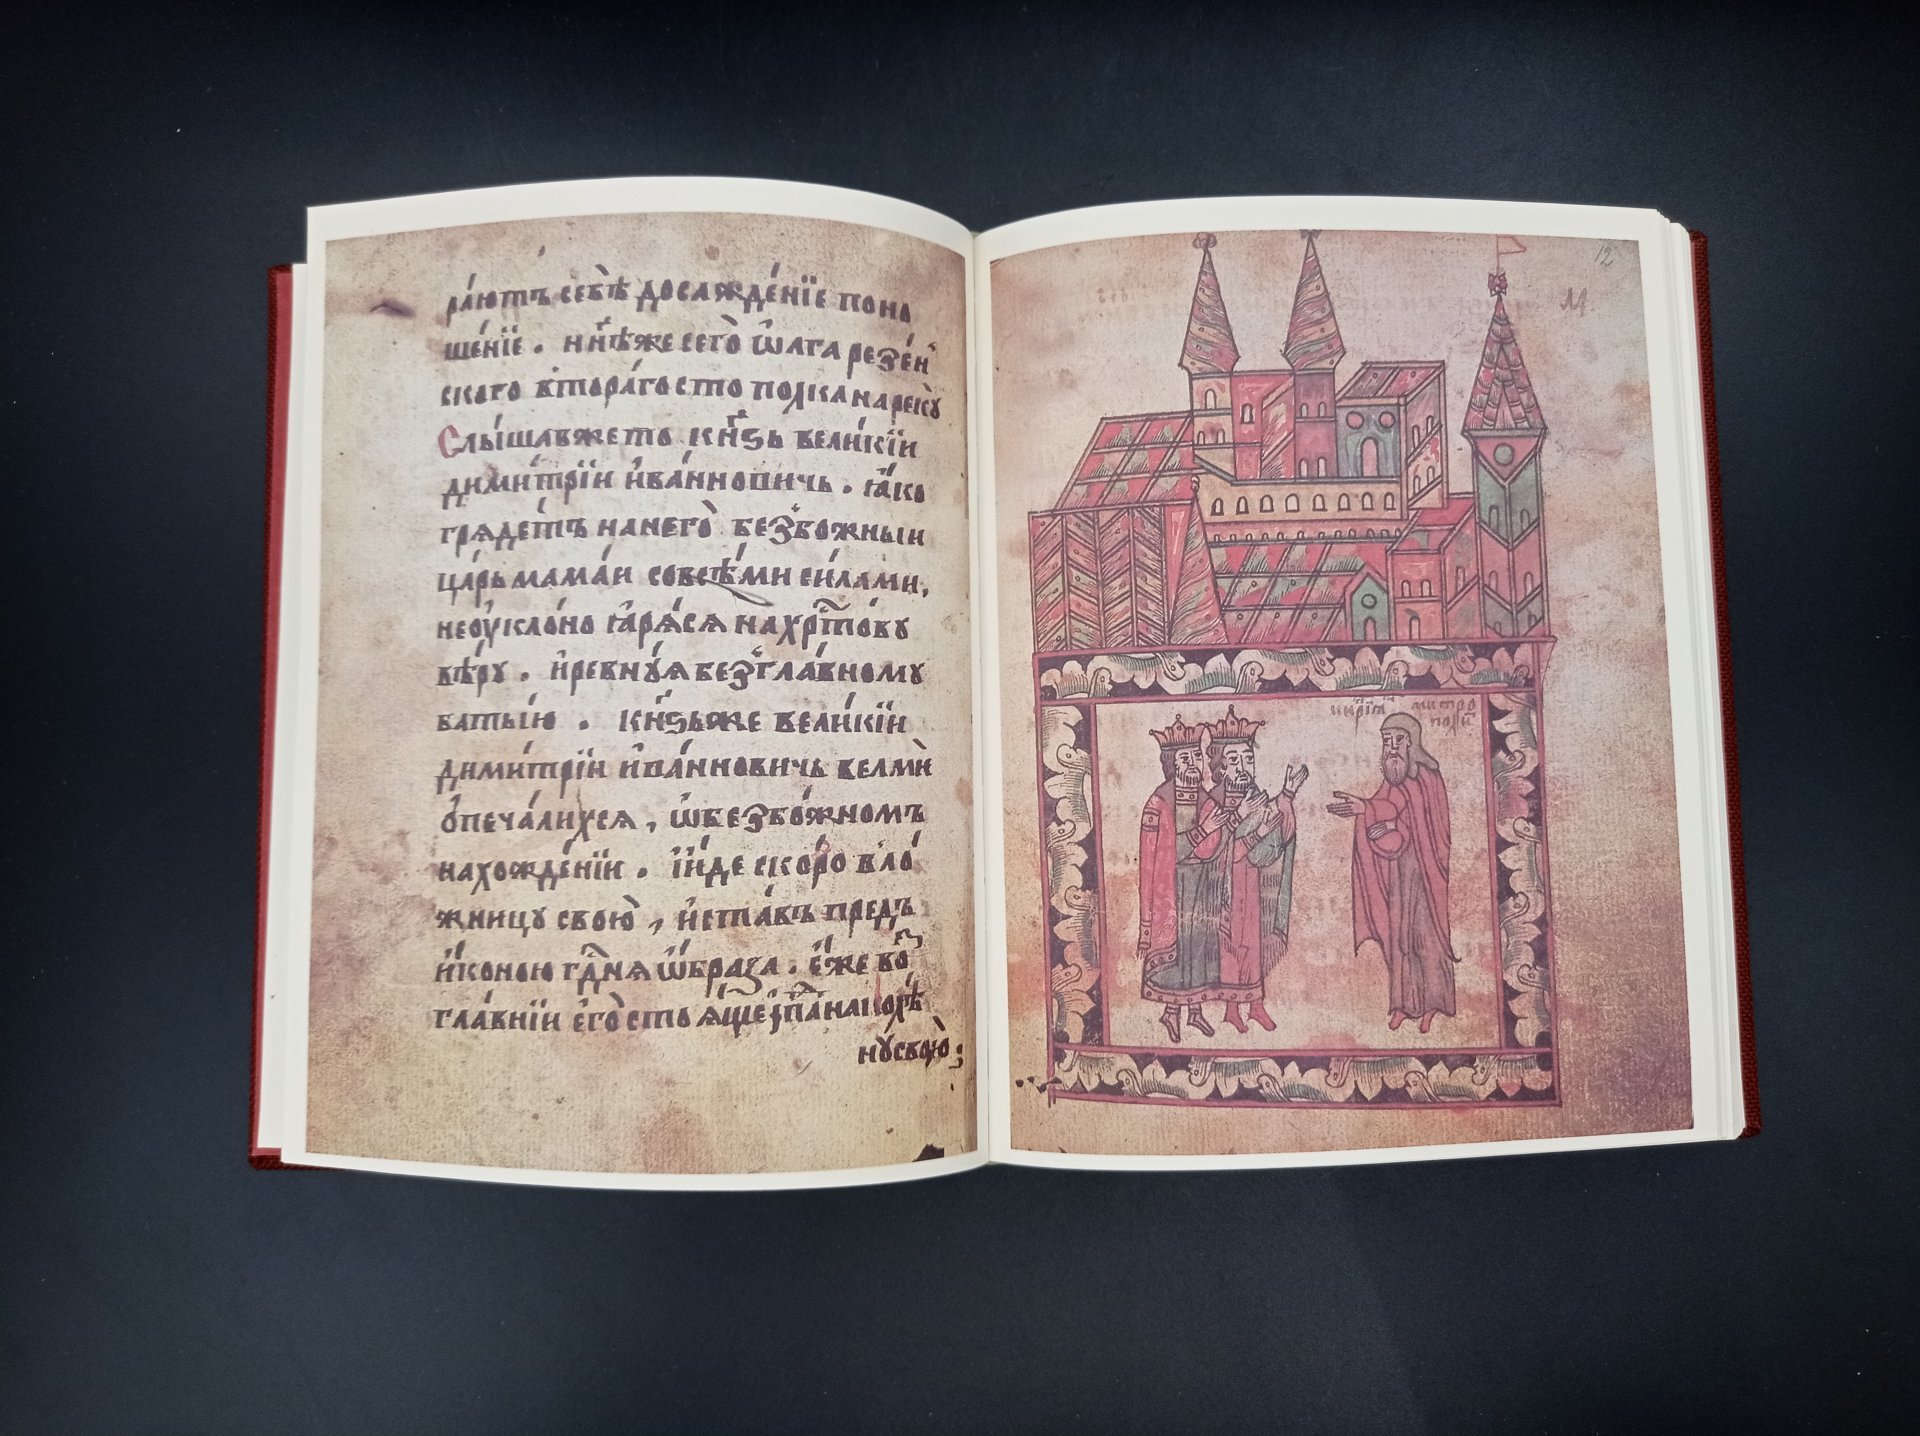 ра́ютъ себѣ̀ досажде́нїе поно
ше́нїе . н н҃ѣже сего̀ ѡ҆лга резе́н
ского в̾тора́го сто полка нареку̀
Слы́шав же то кн҃ѕь вели́кїи
дими́трїи и҆ва́нновичь . ꙗ҆́ко
гряде́тъ на него̀ без̾божныи
ца́рь мама́и со всѣ́ми си́лами,
неѹкло́но ꙗ҆ря́ся на хрⷭ҇то́ву
вѣ́ру . и҆ ревну́я без̾гла́вному
баты́ю . кн҃ѕь же вели́кїи
дими́трїи и҆ва́нновичь велмѝ
ѹ҆печа́лихся, ѡ҆ безбо́жномъ
нахожде́нїи . и҆ и́де ско́ро в ло́
жницу свою̀, и҆ ста́въ предъ
и҆коною гдⷭ҇ня ѡ҆́браза . е҆́же во́з
гла́внїи е҆го̀ стоя́ще, и҆ па́ на колѣ
ну свою̀ :
12
митро
поли